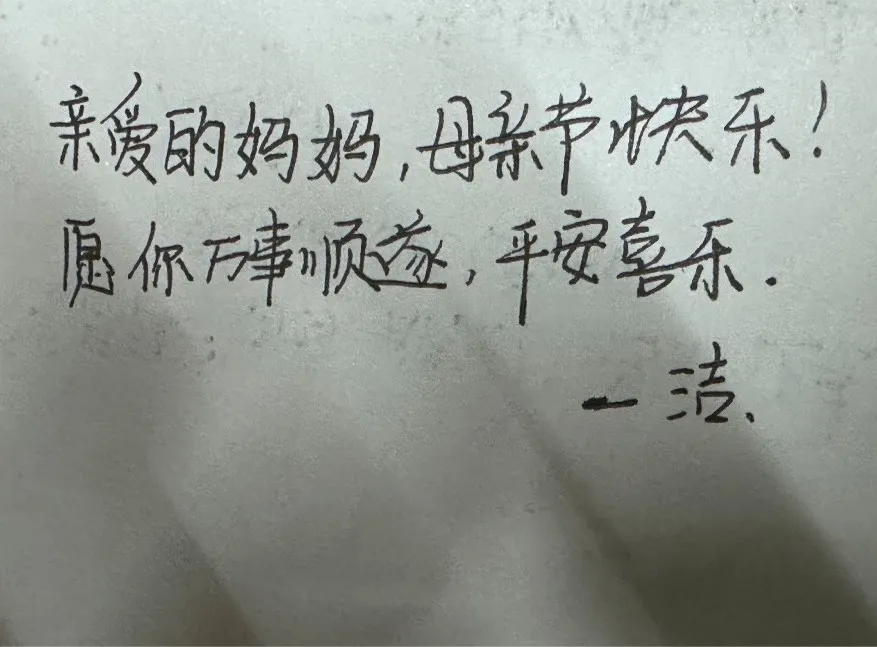 亲爱的妈妈,母亲节快乐!
愿你万事顺遂,平安喜乐.
一洁.